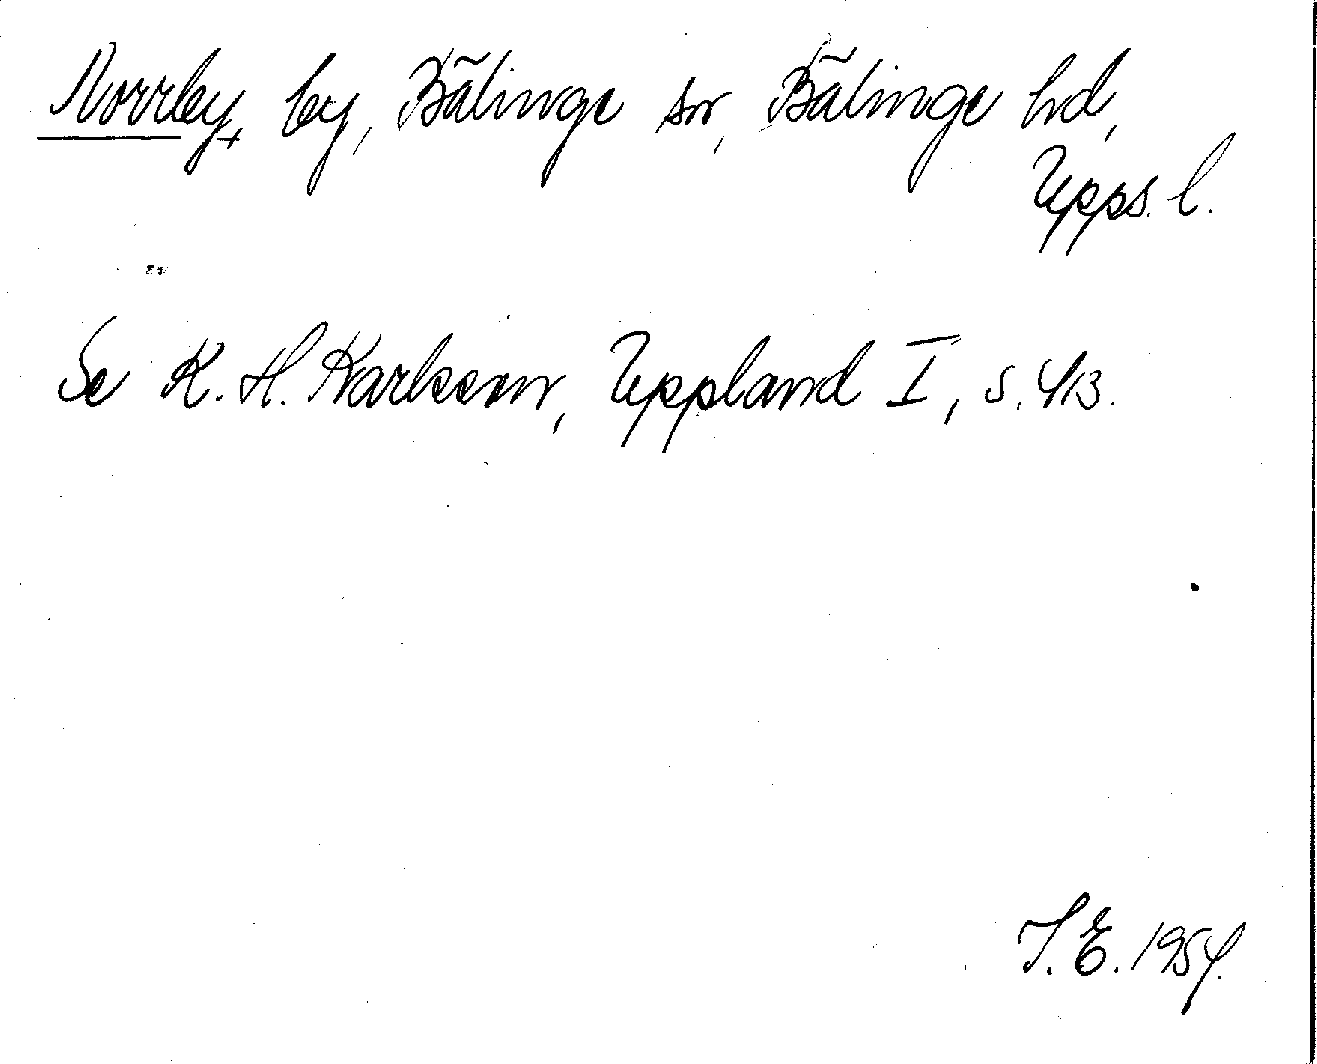 Norrby, by, Bälinge sn, Bälinge hd,
Upps. l.
Se K. H. Karlsson, Uppland I, s. 413.
I. E. 1954.